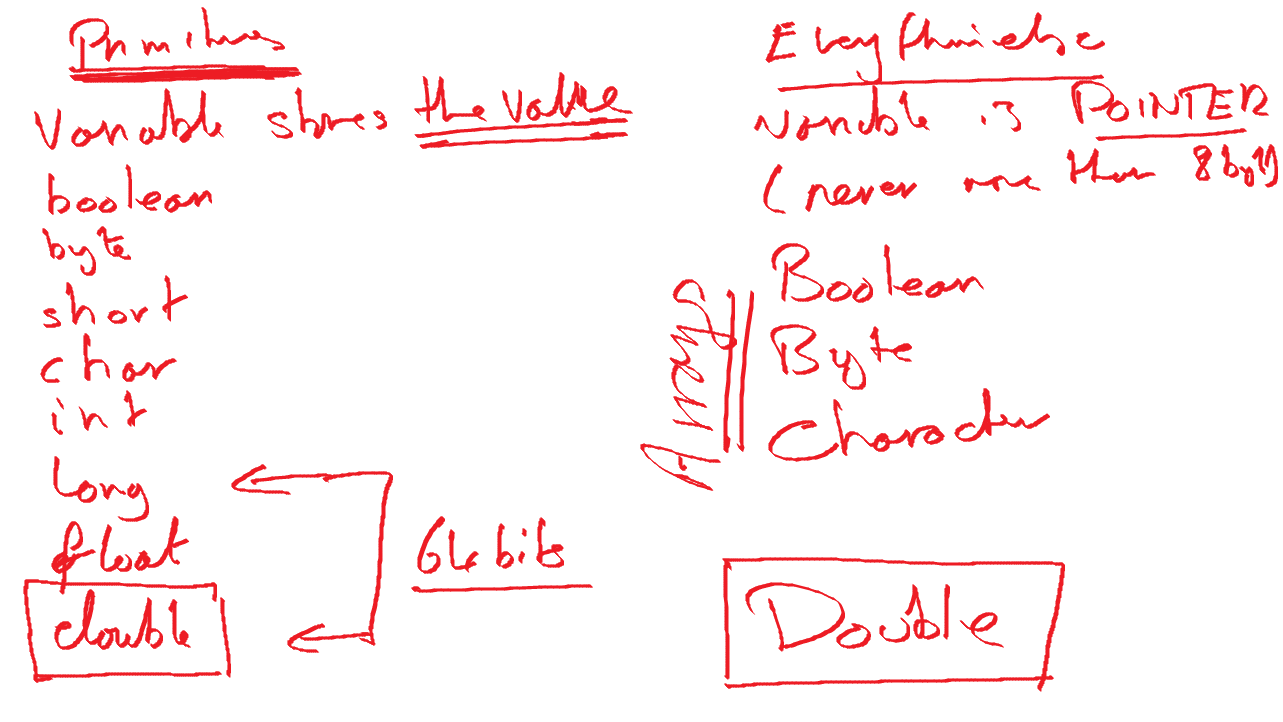 Primitives
Variable stores the value
boolean
byte
short
char
int
long
float
double
64 bits
Everything else
variable is POINTER
(never more than 8 byt)
Arrays
Boolean
Byte
Character
Double